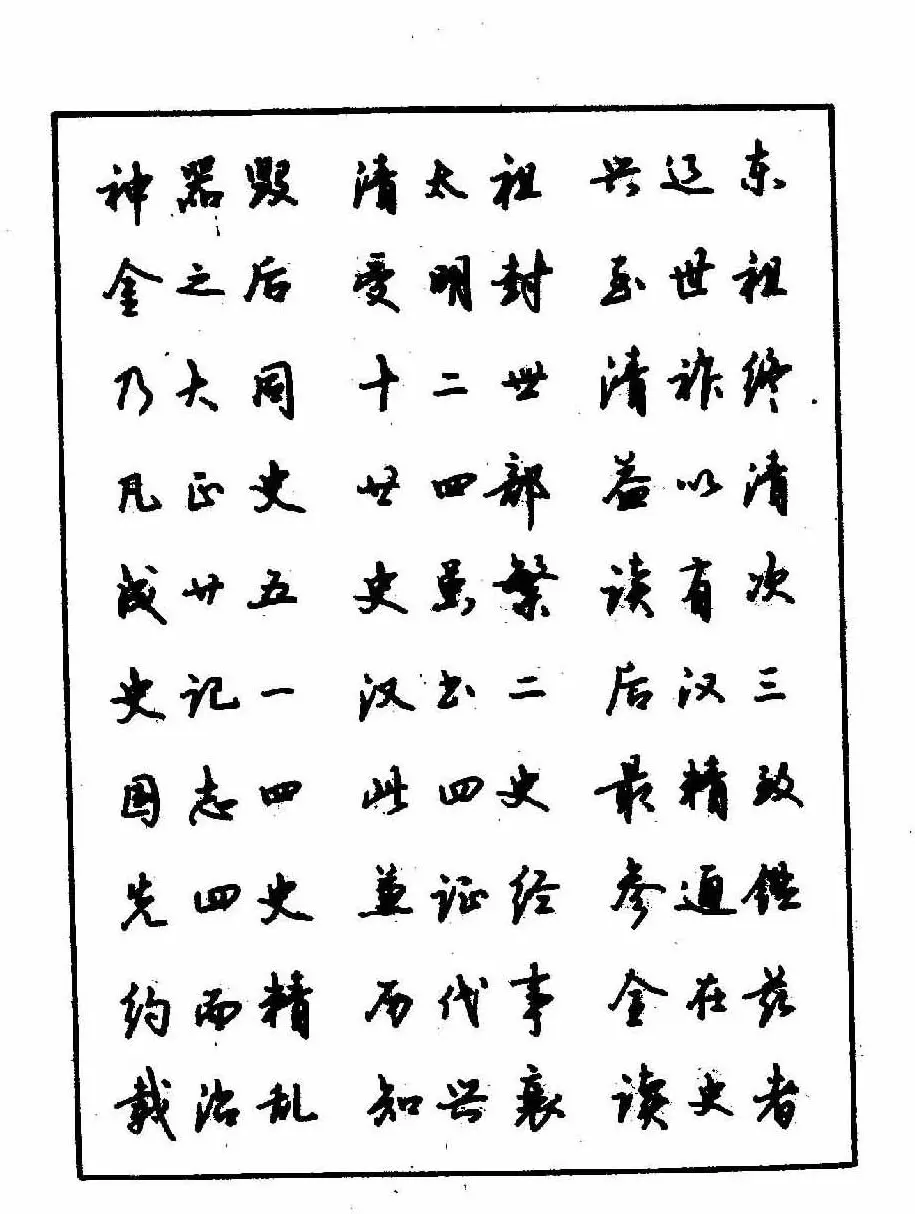 神器毁 清太祖 兴辽东
金之后 受明封 至世祖
乃大同 十二世 清祚终
凡正史 廿四部 益以清
成廿五 史虽繁 读有次
史记一 汉书二 后汉三
国志四 此四史 最精致
先四史 兼证经 参通鉴
约而精 历代事 全在兹
载治乱 知兴衰 读史者